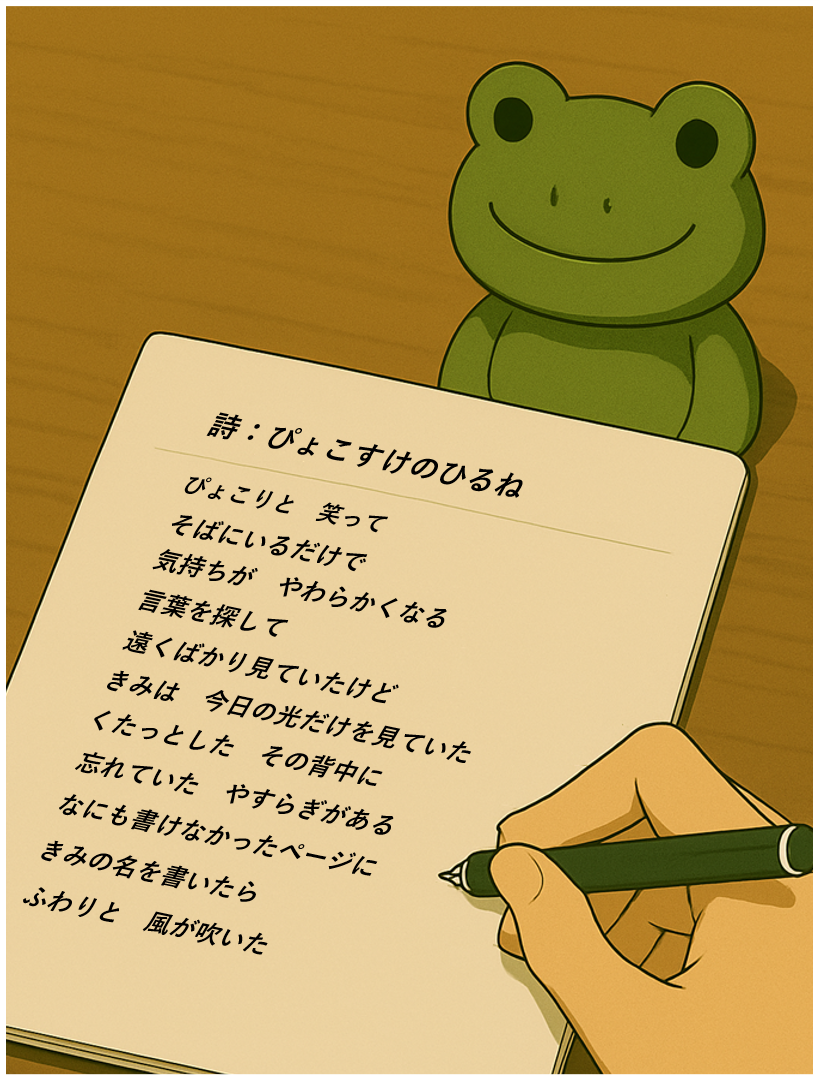 詩：ぴょこすけのひるね
ぴょこりと　笑って
そばにいるだけで
気持ちが　やわらかくなる
言葉を探して
遠くばかり見ていたけど
きみは　今日の光だけを見ていた
くたっとした　その背中に
忘れていた　やすらぎがある
なにも書けなかったページに
きみの名を書いたら
ふわりと　風が吹いた